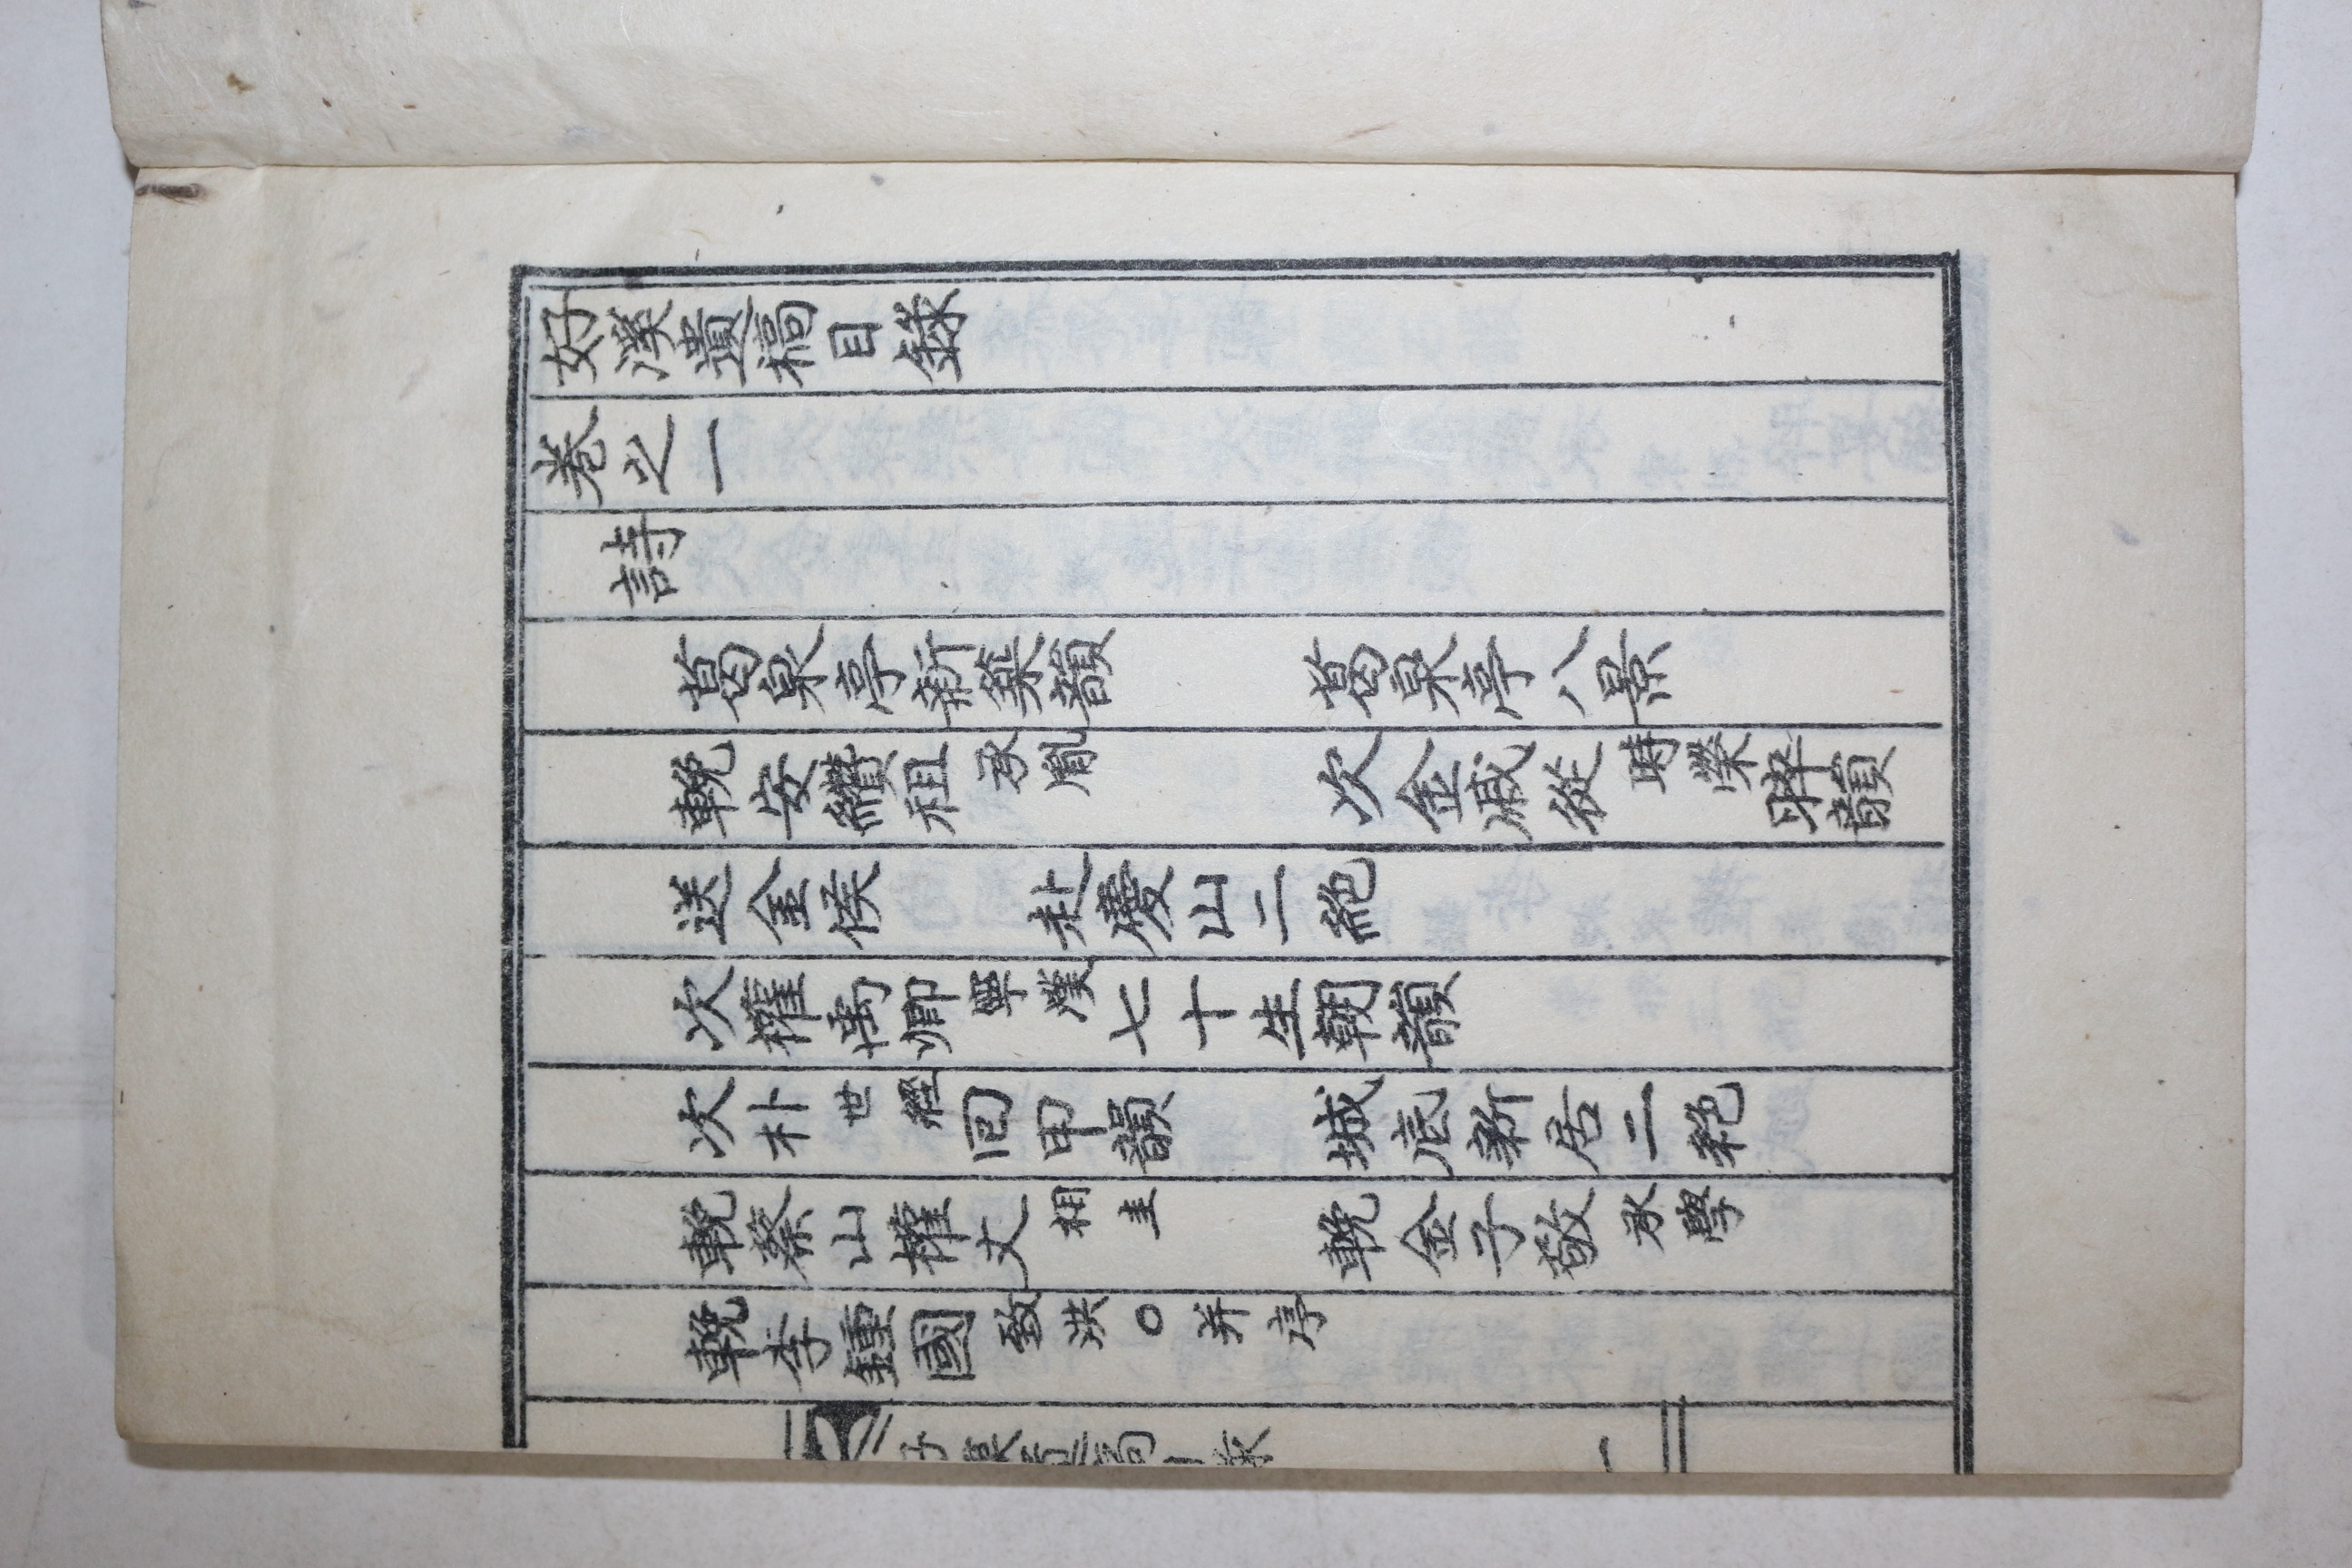 好溪遺稿目錄
卷之一
詩
葛泉亭新築韻 葛泉亭八景
輓安纘祖承胤 次金咸從時榮睟韻
送金侯 赴慶山二絶
次權萬卿畢漢七十生朝韻
次朴世經回甲韻 城底新居二絶
輓蔡山權丈相圭 輓金子敬永學
輓李鍾國致洪○并序